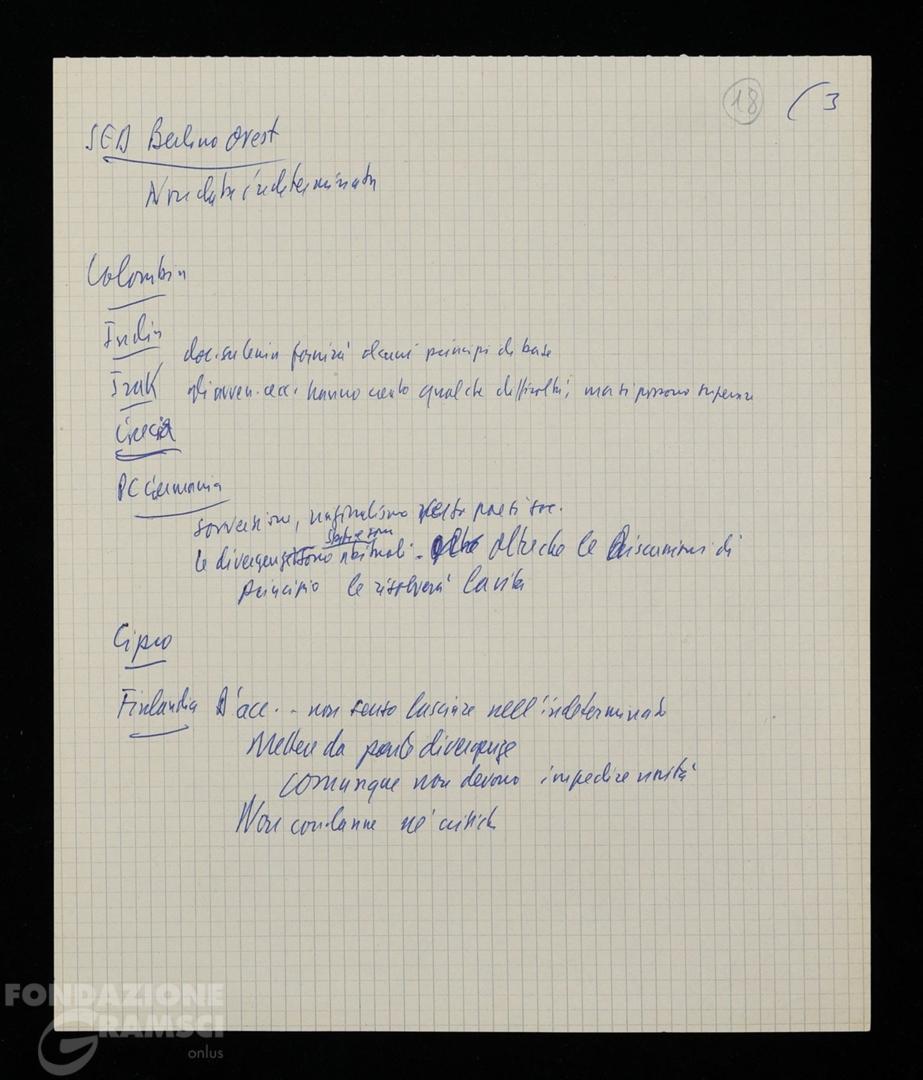 18 (3
SED Berlino Ovest
Non data indeterminata
Colombia
India
doc. su Lenin fornirà alcuni principi di base
Irak gli avven. cecc. hanno creato qualche difficoltà, ma si possono superare
Grecia
PC Germania
sovversione, nazionalismo paesi soc.
le divergenze sono abituali - oltreché le discussioni di
principio le risolverà la vita
Cipro
Finlandia D'acc. - non senso lasciare nell'indeterminato
Mettere da parte divergenze
comunque non devono impedire unità
Non condanne né critiche
FONDAZIONE
GRAMSCI
onlus